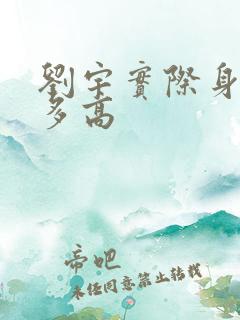 劉宇實際身
多高
帝吧
未经同意禁止转载